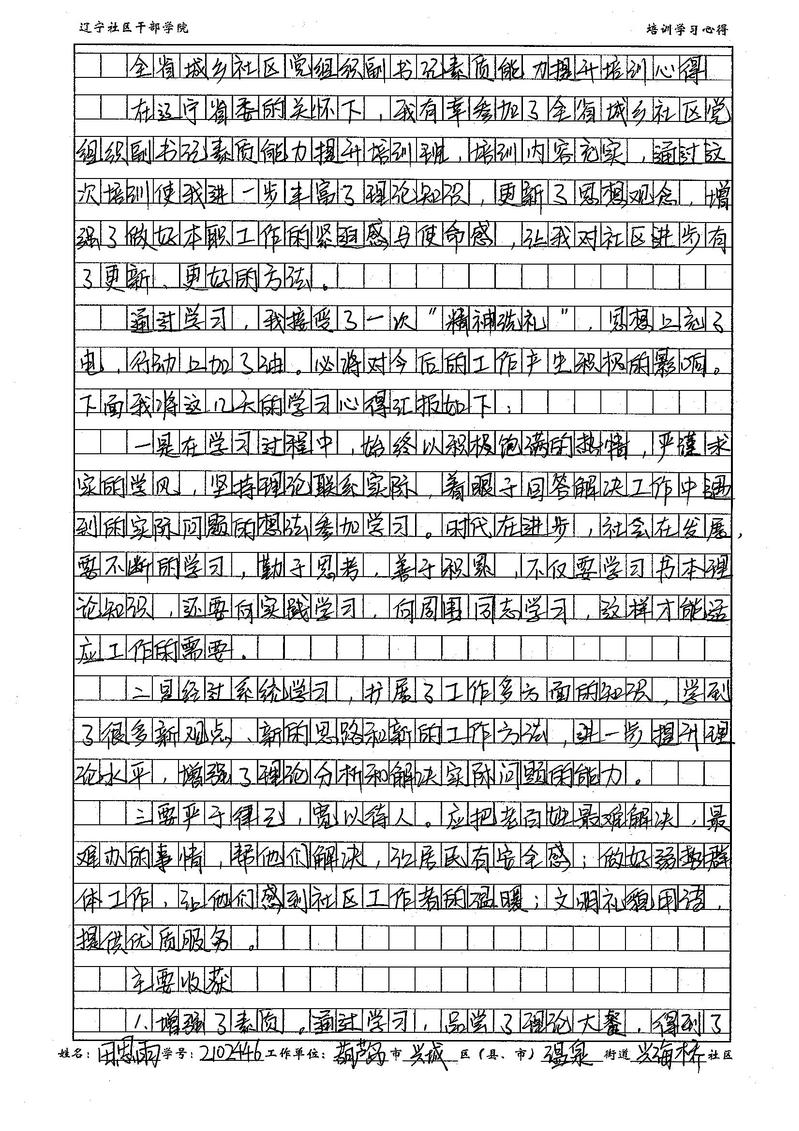 辽宁社区干部学院 培训学习心得
全省城乡社区党组织副书记素质能力提升培训心得
在辽宁省委的关怀下，我有幸参加了全省城乡社区党
组织副书记素质能力提升培训班，培训内容充实，通过这
次培训使我进一步丰富了理论知识，更新了思想观念，增
强了做好本职工作的紧迫感与使命感，让我对社区进步有
了更新、更好的方法。
通过学习，我接受了一次“精神洗礼”，思想上充了
电，行动上加了油。必将对今后的工作产生积极的影响。
下面我将这几天的学习心得汇报如下：
一是在学习过程中，始终以积极饱满的热情，严谨求
实的学风，坚持理论联系实际，着眼于回答解决工作中遇
到的实际问题的想法参加学习。时代在进步，社会在发展，
要不断的学习，勤于思考，善于积累，不仅要学习书本理
论知识，还要向实践学习，向周围同志学习，这样才能适
应工作的需要。
二是经过系统学习，扩展了工作多方面的知识，学到
了很多新观点、新的思路和新的工作方法，进一步提升理
论水平，增强了理论分析和解决实际问题的能力。
三要严于律己，宽以待人。应把老百姓最难解决，最
难办的事情，帮他们解决，让居民有安全感；做好弱势群
体工作，让他们感到社区工作者的温暖；文明礼貌用语，
提供优质服务。
主要收获
1.增强了素质。通过学习，品尝了理论大餐，得到了
姓名：田思雨 学号：2102446 工作单位：葫芦岛市 兴城 区（县、市） 温泉 街道 兴海桥 社区